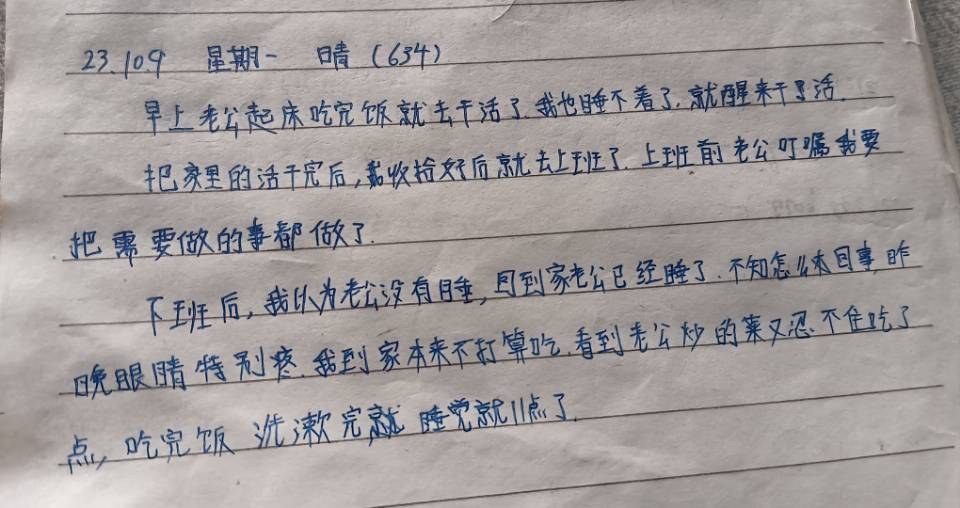 23.10.9 星期一 晴（634）
早上老公起床吃完饭就去干活了.我也睡不着了.就醒来干了活.
把家里的活干完后,我收拾好后就去上班了.上班前老公叮嘱我要
把需要做的事都做了.
下班后,我以为老公没有睡,回到家老公已经睡了.不知怎么回事,昨
晚眼睛特别疼.我到家本来不打算吃.看到老公炒的菜又忍不住吃了
点,吃完饭 洗漱完就睡觉就11点了.